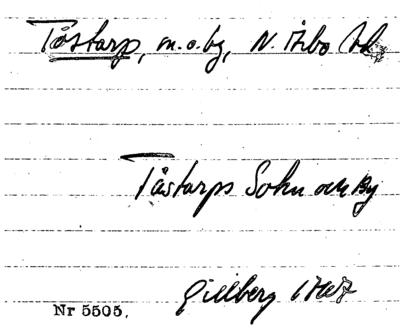 Tåstarp, m.o.by, N. Åsbo hd
Tåstarps Sokn och By
Gillberg 1767
Nr 5505.